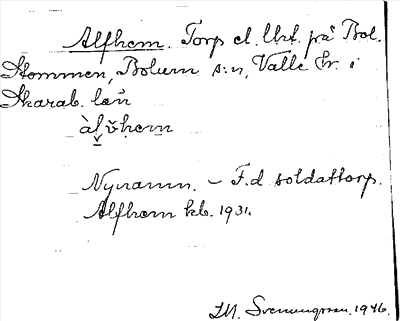 Alfhem. Torp el. Urf. på Bol.
Stommen, Bolum s:n, Valle hr. i
Skarab. län
àlvhem
Nynamn. – F.d. soldattorp.
Alfhem kb. 1931.
Svenungsson. 1946.